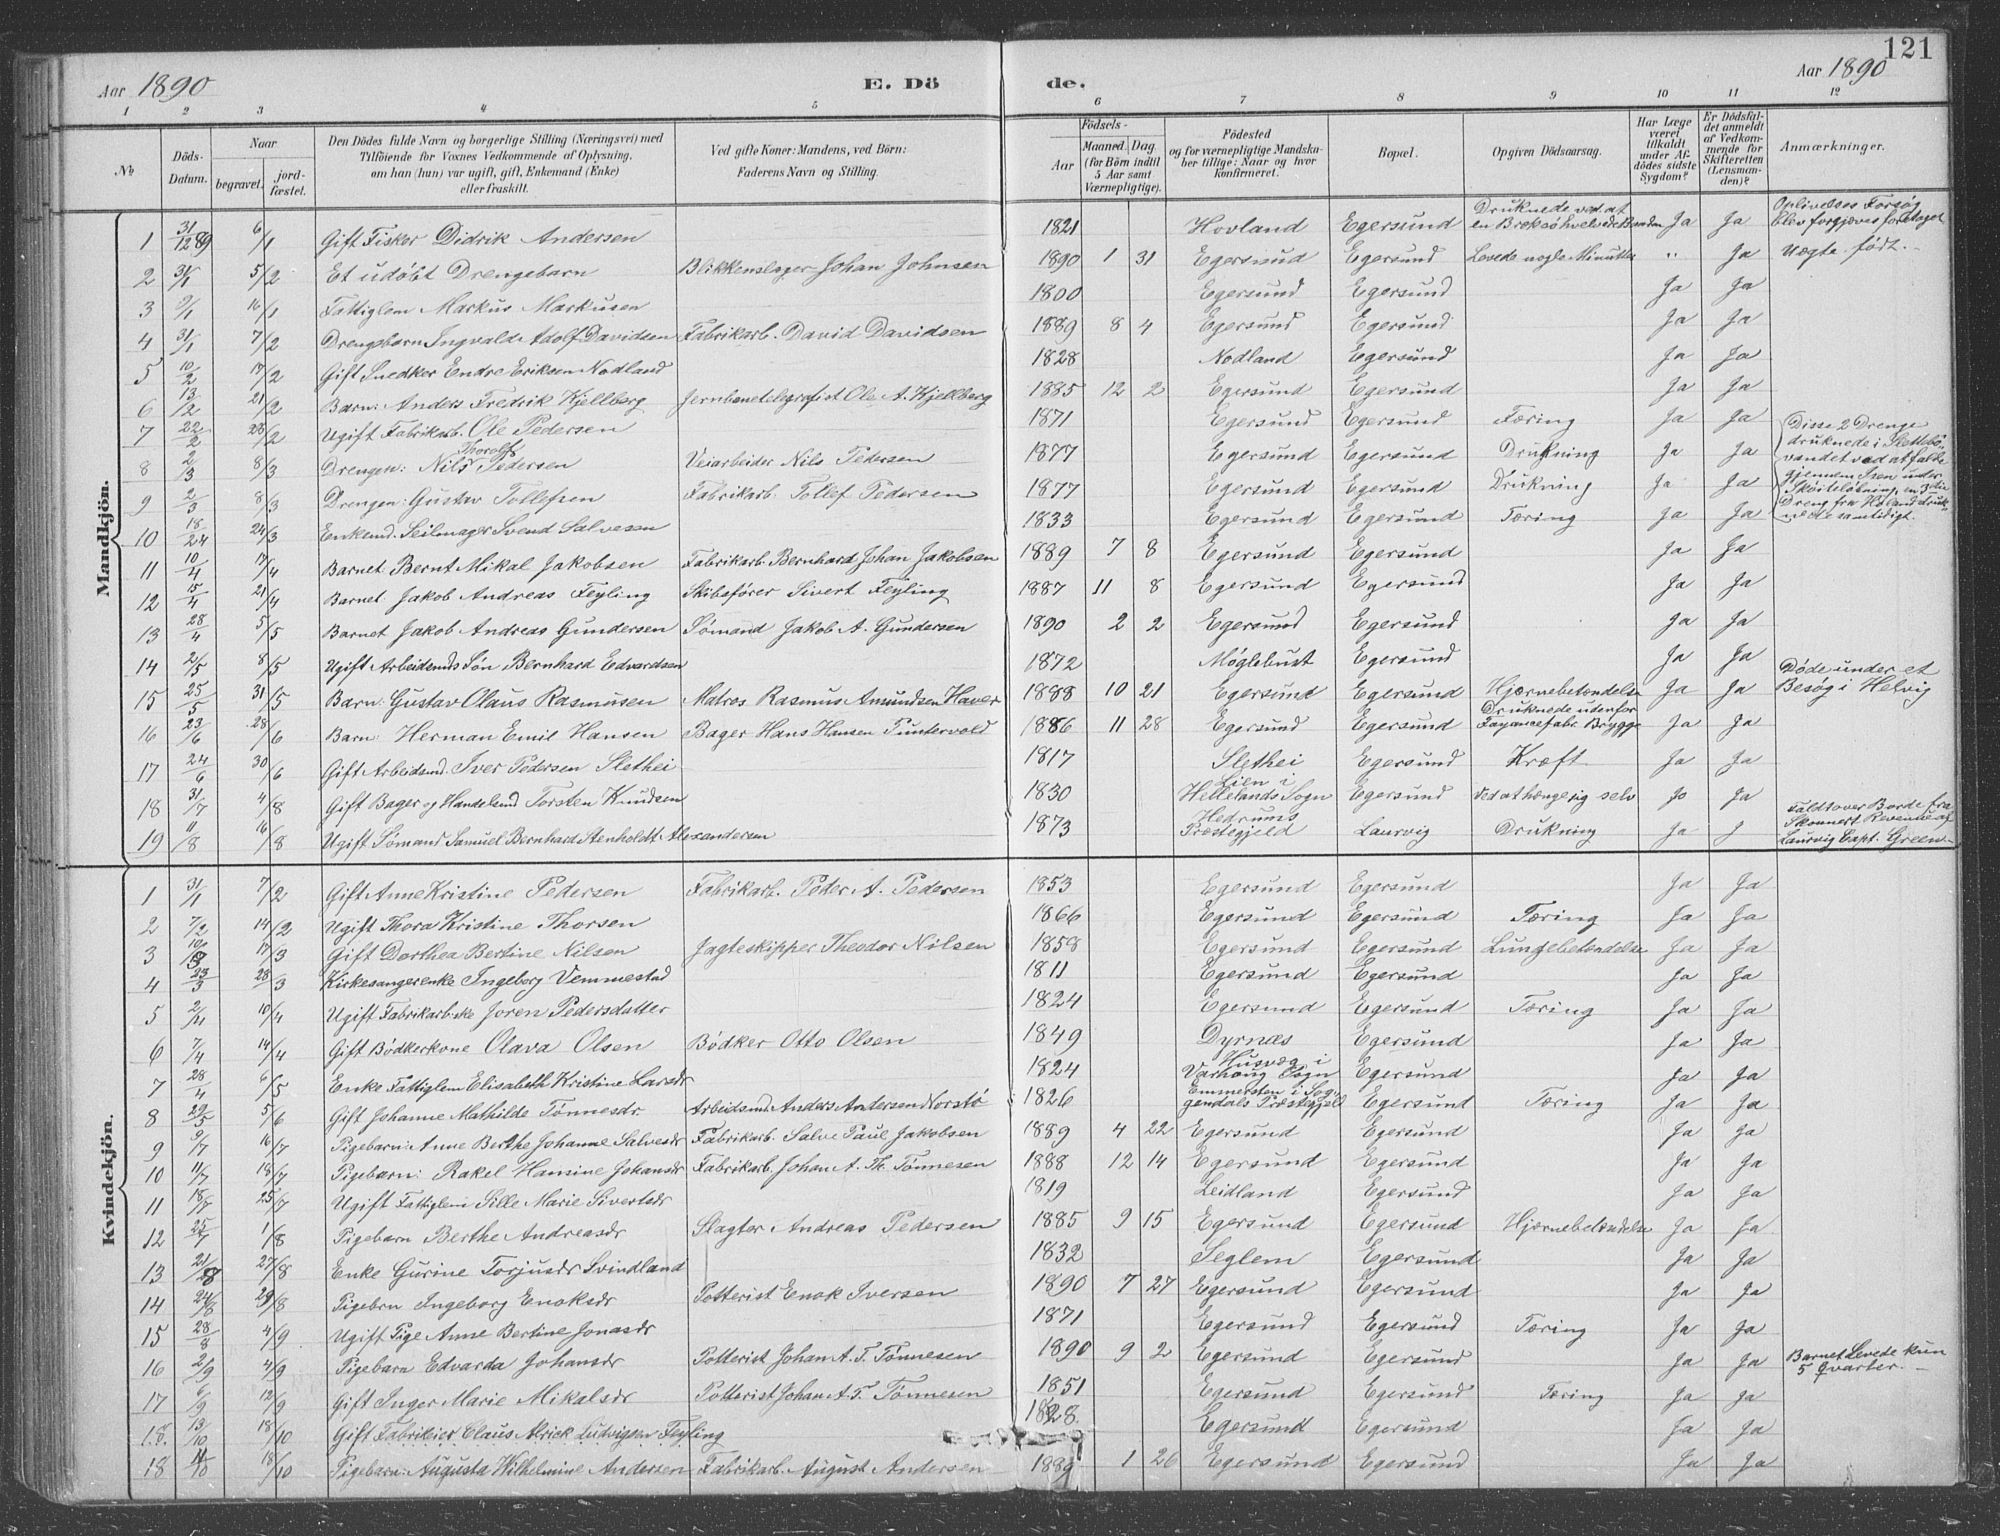 121
Aar 1890 E. Dö de. Aar 1890
1 2 3 4 5 6 7 8 9 10 11 12
No Döds-Datum. Naar begravet. jordfæstet. Den Dödes fulde Navn og borgerlige Stilling (Næringsvei) med Tilföiende for Voxnes Vedkommende af Oplysning, om han (hun) var ugift, gift, Enkemand (Enke) eller fraskilt. Ved gifte Koner: Mandens, ved Börn: Faderens Navn og Stilling. Födsels- Aar Maaned. Dag. (for Börn indtil 5 Aar samt Værnepligtige). Födested og for værnepligtige Mandskaber tillige: Naar og hvor konfirmeret. Bopæl. Opgiven Dödsaarsag. Har Læge været tilkaldt under Afdödes sidste Sygdom? Er Dödsfaldet anmeldt af Vedkommende for Skifteretten (Lensmanden)? Anmærkninger.
Mandkjön.
1 31/12 89 6/1 Gift Fisker Didrik Andersen 1821 Hovland Egersund Druknede ved at en Bræksö hvelvede Baaden Ja Ja Oplivelses Forsög blev forgjæves foretaget
2 31/1 5/2 Et udöbt Drengebarn Blikkenslager Johan Johnsen 1890 1 31 Egersund Egersund Levede nogle Minutter " Ja Uægte født.
3 9/1 16/1 Fattiglem Markus Markusen 1800 Egersund Egersund Ja Ja
4 31/1 7/2 Drengebarn Ingvald Adolf Davidsen Fabrikarb. David Davidsen 1889 8 4 Egersund Egersund Ja Ja
5 10/2 17/2 Gift Snedker Endre Eriksen Nodland 1828 Nodland Egersund Ja Ja
6 13/2 21/2 Barn: Anders Fredrik Kjellberg Jernbanetelegrafist Ole A. Kjellberg 1885 12 2 Egersund Egersund Ja Ja
7 22/2 28/2 Ugift Fabrikarb. Ole Pedersen 1871 Egersund Egersund Tæring Ja Ja
8 2/3 8/3 Drengen: Nils Thorolf Pedersen Veiarbeider Nils Pedersen 1877 Egersund Egersund Drukning Ja Ja Disse 2 Drenge druknede i Slettebövandet ved at falde gjennem Isen under Skøiteløbning, en 3die Dreng fra Høland druknede samtidigt.
9 2/3 8/3 Drengen: Gustav Tollefsen Fabrikarb. Tollef Pedersen 1877 Egersund Egersund Drukning Ja Ja
10 18/24 24/3 Enkemd. Seilmager Svend Salvesen 1833 Egersund Egersund Tæring Ja Ja
11 10/4 17/4 Barnet Bernt Mikal Jakobsen Fabrikarb. Bernhard Johan Jakobsen 1889 7 8 Egersund Egersund Ja Ja
12 15/4 21/4 Barnet Jakob Andreas Feyling Skibsfører Sivert Feyling 1887 11 8 Egersund Egersund Ja Ja
13 28/4 5/5 Barnet Jakob Andreas Gundersen Sømand Jakob A. Gundersen 1890 2 2 Egersund Egersund Ja Ja
14 2/5 8/5 Ugift Arbeidsmds Søn Bernhard Edvardsen 1872 Møglebust Egersund Ja Ja
15 25/5 31/5 Barn: Gustav Olaus Rasmusen Matros Rasmus Amundsen Haver 1888 10 21 Egersund Egersund Hjærnebetændelse Ja Ja Døde under et Besøg i Helvig
16 23/6 28/6 Barn: Herman Emil Hansen Bager Hans Hansen Puntervold 1886 11 28 Egersund Egersund Druknede udenfor Fayancefabr. Brygge Ja Ja
17 24/6 30/6 Gift Arbeidsmd. Iver Pedersen Slethei 1817 Slethei Egersund Kræft Ja Ja
18 31/7 4/8 Gift Bager og Handelsmd Torsten Knudsen 1830 Lien i Hellelands Sogn Egersund Ved at hænge sig selv Ja Ja
19 11/8 16/8 Ugift Sømand Samuel Bernhard Stenholdt Alexandersen 1873 Hedrums Præstegjeld Laurvig Drukning Ja J Faldt over Borde fra Skonnert Revenue af Laurvig Capt. Green
Kvindekjön.
1 31/1 7/2 Gift Anne Kristine Pedersen Fabrikarb. Peder A. Pedersen 1853 Egersund Egersund Ja Ja
2 7/2 14/2 Ugift Thora Kristine Thorsen 1866 Egersund Egersund Tæring Ja Ja
3 10/3 17/3 Gift Dorthea Bertine Nilsen Jagteskipper Theodor Nilsen 1858 Egersund Egersund Lungebetændelse Ja Ja
4 23/3 28/3 Kirkesangerenke Ingeborg Vemmestad 1811 Egersund Egersund Ja Ja
5 2/4 10/4 Ugift Fabrikarbske Joren Pedersdatter 1824 Egersund Egersund Tæring Ja Ja
6 7/4 14/4 Gift Bödkerkone Olava Olsen Bödker Otto Olsen 1849 Dyrnæs Egersund Ja Ja
7 28/4 6/5 Enke Fattiglem Elisabeth Kristine Larsdr 1824 Husvæg i Varhaug Sogn Egersund Ja Ja
8 29/5 5/6 Gift Johanne Mathilde Tønnesdr Arbeidsmd. Anders Andersen Norstø 1826 Emmersten i Soggendals Præstegjeld Egersund Tæring Ja Ja
9 9/7 16/7 Pigebarn: Anne Berthe Johanne Salvesdr Fabrikarb. Salve Paul Jakobsen 1889 4 22 Egersund Egersund Ja Ja
10 11/7 18/7 Pigebarn: Rakel Hansine Johansdr Fabrikarb. Johan A. Th. Tønnesen 1888 12 14 Egersund Egersund Ja Ja
11 18/7 25/7 Ugift Fattiglem Sille Marie Sivertsdr 1819 Leidland Egersund Ja Ja
12 25/7 1/8 Pigebarn Berthe Andreasdr Slagter Andreas Pedersen 1885 9 15 Egersund Egersund Hjærnebetændelse Ja Ja
13 21/8 27/8 Enke Gurine Torjusdr Svindland 1832 Seglem Egersund Ja Ja
14 24/8 29/8 Pigebrn Ingeborg Enoksdr Potterist Enok Iversen 1890 7 27 Egersund Egersund Ja Ja
15 28/8 4/9 Ugift Pige Anne Bertine Jonasdr 1871 Egersund Egersund Tæring Ja Ja
16 2/9 4/9 Pigebarn Edvarda Johansdr Potterist Johan A. T. Tønnesen 1890 9 2 Egersund Egersund Ja Ja Barnet Levede kun 5 Qvarter.
17 6/9 12/9 Gift Inger Marie Mikalsdr Potterist Johan A. T. Tønnesen 1851 Egersund Egersund Tæring Ja Ja
18. 13/10 18/10 Gift Fabrikier Claus Alrick Ludvigsen Feyling 1828. Egersund Egersund Ja Ja
18 11/10 18/10 Pigebarn: Augusta Wilhelmine Andersen Fabrikarb. August Andersen 1889 1 26 Egersund Egersund Ja Ja